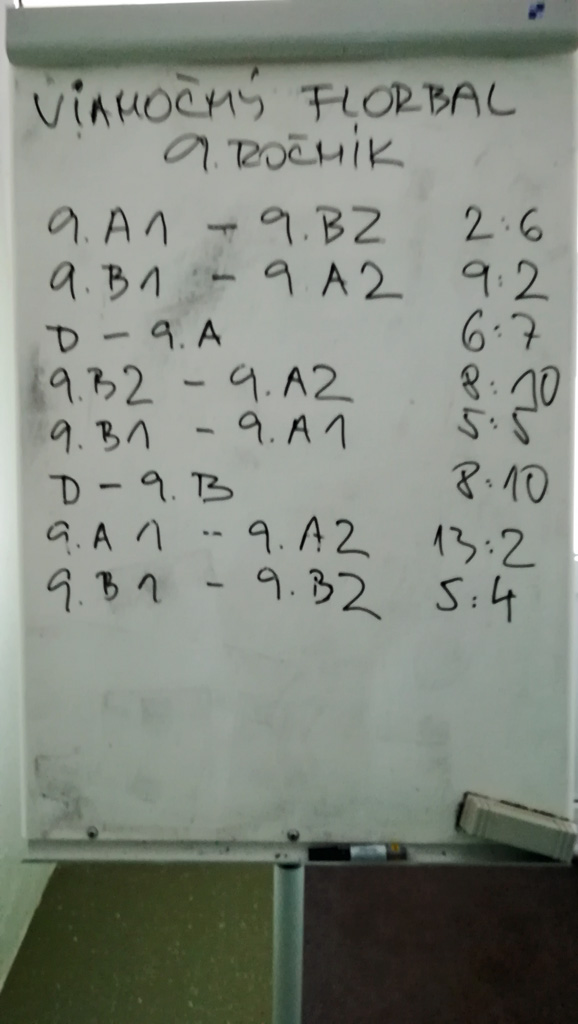 VIANOČNÝ FLORBAL
9. ROČNÍK
9.A1 - 9.B2 2:6
9.B1 - 9.A2 9:2
D - 9.A 6:7
9.B2 - 9.A2 8:10
9.B1 - 9.A1 5:5
D - 9.B 8:10
9.A1 - 9.A2 13:2
9.B1 - 9.B2 5:4